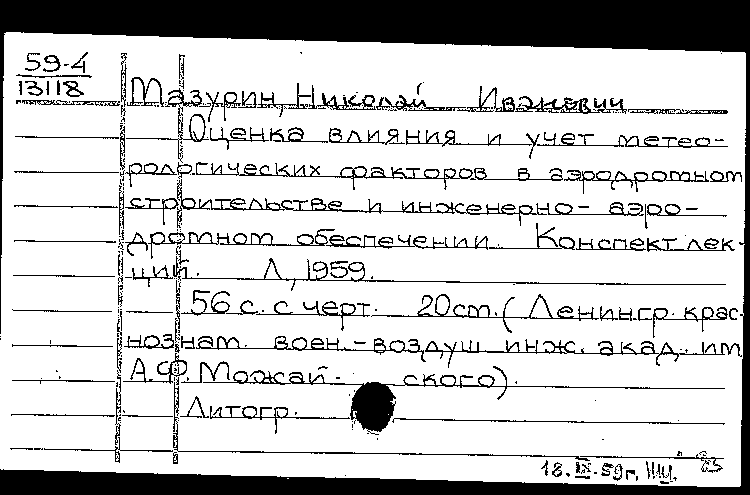 59-4
13118
Мазурин, Николай Иванович
Оценка влияния и учет метео-
рологических факторов в аэродромном
строительстве и инженерно-аэро-
дромном обеспечении. Конспект лек-
ций. Л., 1959.
56 с. с черт. 20 см. (Ленингр. крас-
нознам. воен.-воздуш инж. акад. им
А.Ф. Можай- ского).
Литогр.
18.IX.59г.